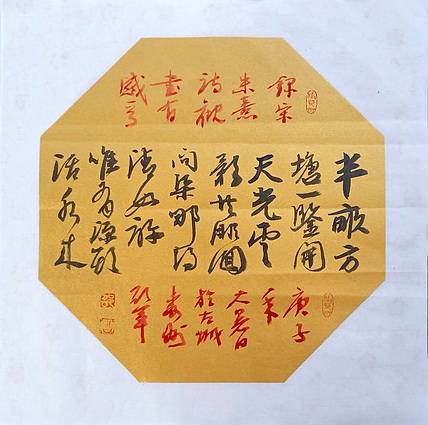 錄宋
朱熹
詩觀
書有
感
半畝方
塘一鑒開
天光雲
影共徘徊
問渠那得
清如許
唯有源頭
活水來
庚子
秊
大暑日
於古城